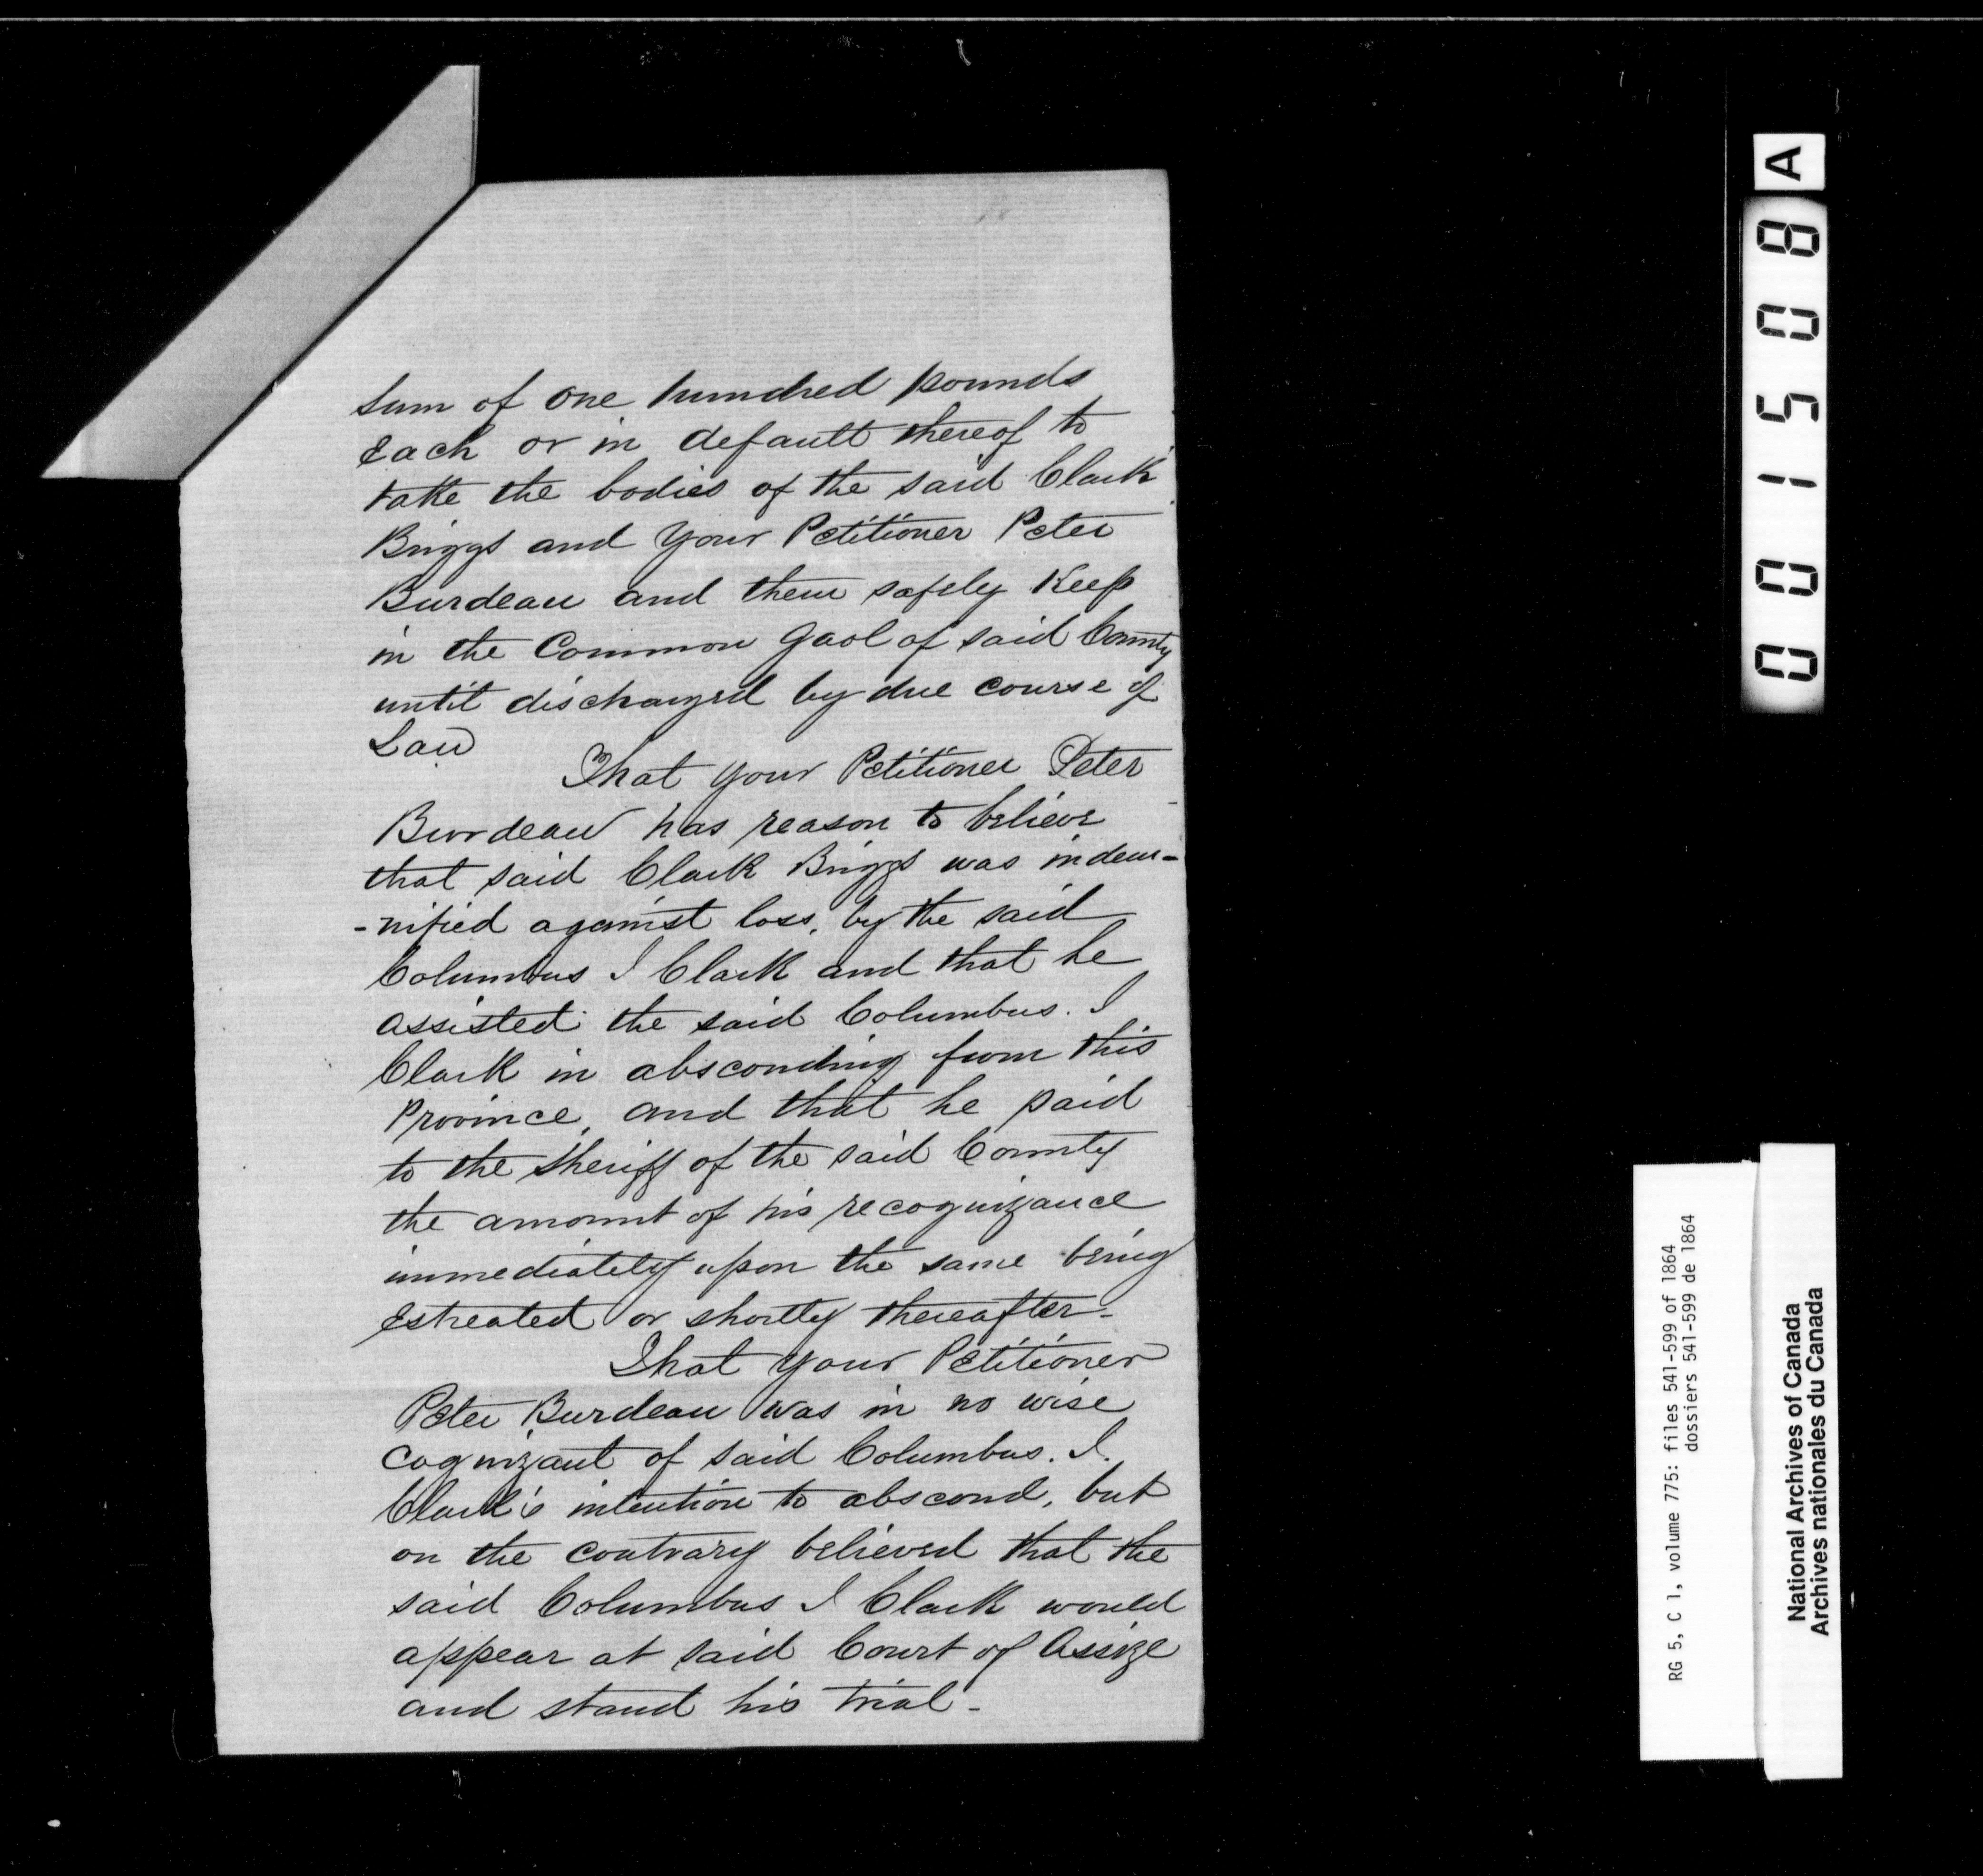 sum of one hundred pounds
Each or in default thereof to
take the bodies of the said Clark
Briggs and your Petitioner Peter
Burdeau and them safely Keep
in the Common Gaol of said County
until discharged by due course of
Law
That your Petitioner Peter
Burdeau has reason to believe
that said Clark Briggs was indem-
-nified against loss, by the said
Columbus I Clark and that he
assisted the said Columbus. I
Clark in absconding from this
Province, and that he paid
to the Sheriff of the said County
the amount of his recognizance
immediately upon the same being
Estreated or shortly thereafter-
That your Petitioner
Peter Burdeau was in no wise
cognizant of said Columbus. I.
Clark's intention to abscond, but
on the contrary believed that the
said Columbus I Clark would
appear at said Court of Assize
and stand his trial-
001508 A
RG 5, C 1, volume 775: files 541-599 of 1864
dossiers 541-599 de 1864
National Archives of Canada
Archives nationales du Canada